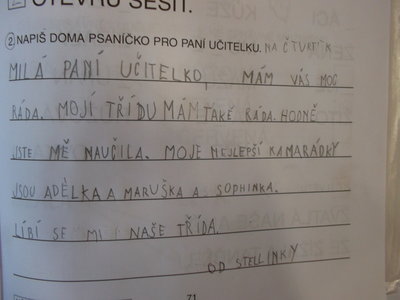 OTEVŘU SEŠIT.
2 NAPIŠ DOMA PSANÍČKO PRO PANÍ UČITELKU. NA ČTVRTEK
MILÁ PANÍ UČITELKO, MÁM VÁS MOC
RÁDA. MOJÍ TŘÍDU MÁM TAKÉ RÁDA. HODNĚ
JSTE MĚ NAUČILA. MOJE NEJLEPŠÍ KAMARÁDKY
JSOU ADÉLKA A MARUŠKA A SOPHINKA.
LÍBÍ SE MI I NAŠE TŘÍDA.
OD STELLINKY
71